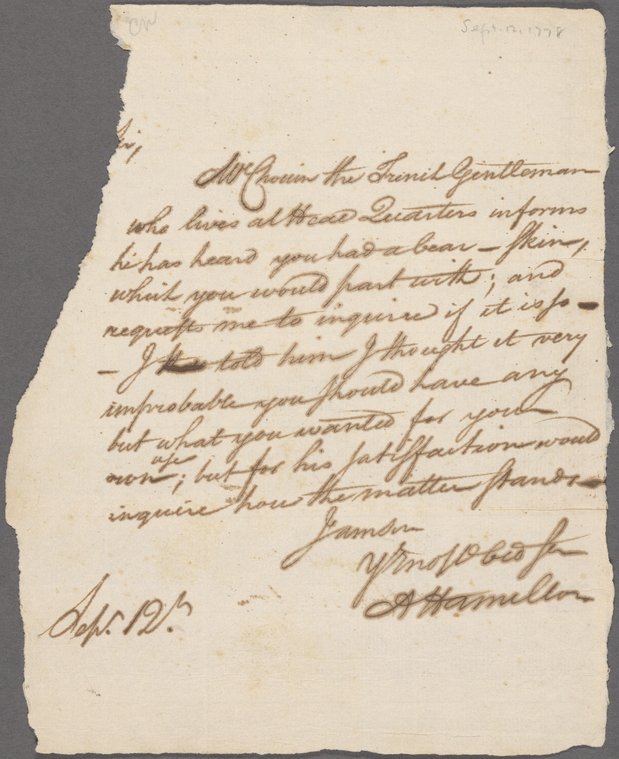 CW
Sept. 12, 1778
Sir,
Mr. Chouin the French Gentleman
who lives at Head Quarters informs
he has heard you had a bear-skin,
which you would part with; and
requests me to inquire if it is so—
— I told him I thought it very
improbable you should have any
but what you wanted for your
own use; but for his satisfaction would
inquire how the matter stands—
I am Sir
Yr most Obed Ser
A Hamilton
Sept. 12th